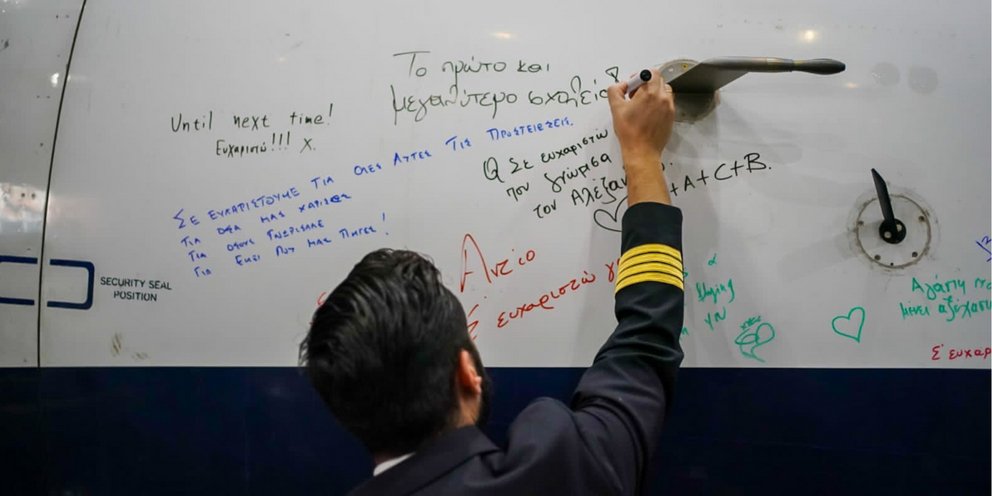 Το πρώτο και
μεγαλύτερο σχολείο
Until next time!
Ευχαριστώ!!! X.
ΣΕ ΕΥΧΑΡΙΣΤΟΥΜΕ ΓΙΑ ΟΛΕΣ ΑΥΤΕΣ ΤΙΣ ΠΡΟΣΓΕΙΩΣΕΙΣ.
ΓΙΑ ΟΣΑ ΜΑΣ ΧΑΡΙΣΕΣ
ΓΙΑ ΟΣΟΥΣ ΓΝΩΡΙΣΑΜΕ
ΓΙΑ ΕΚΕΙ ΠΟΥ ΜΑΣ ΠΗΓΕΣ!
Σε ευχαριστώ
που γνώρισα
τον Αλέξαν
+A+C+B.
Αντίο
ευχαριστώ
SECURITY SEAL
POSITION
Αγάπη
μένει
Σ' ευχαρ